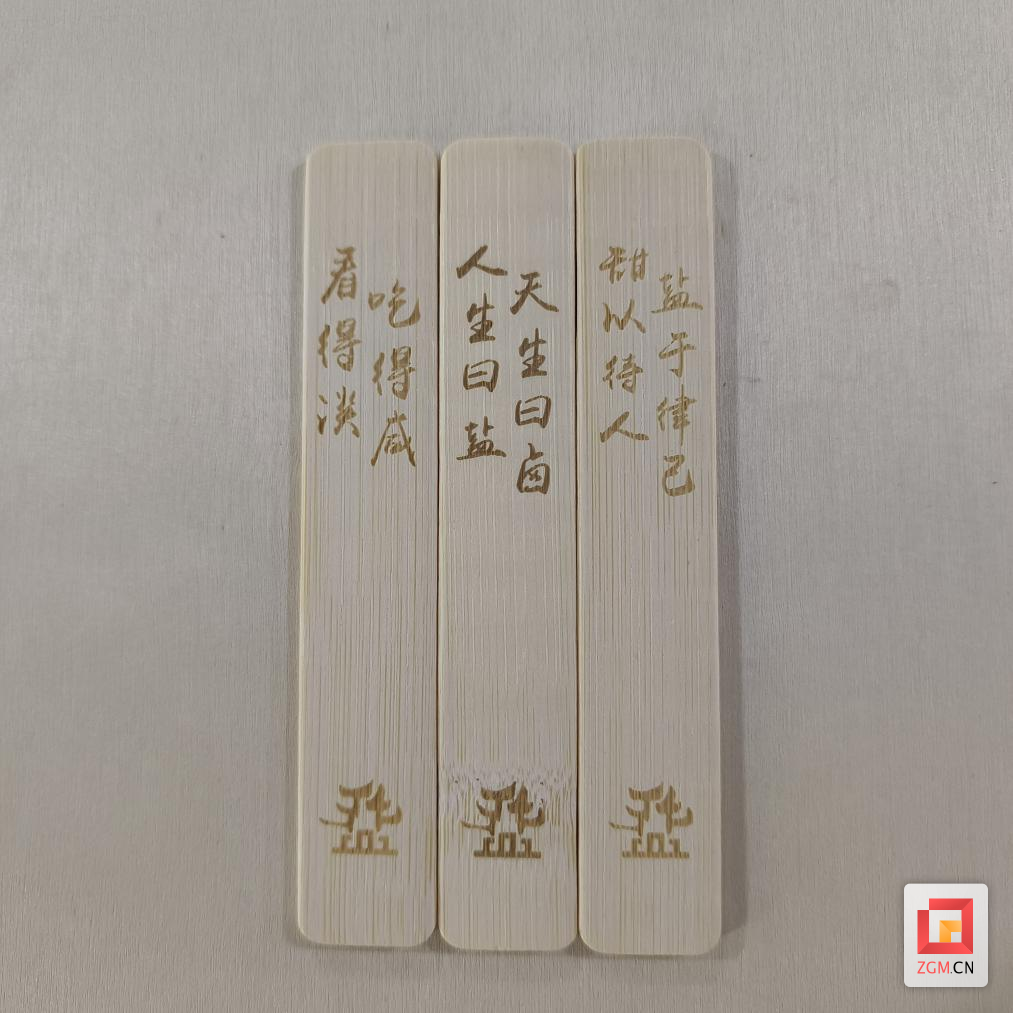 盐于律己
甜以待人
天生曰卤
人生曰盐
吃得咸
看得淡
ZGM.CN